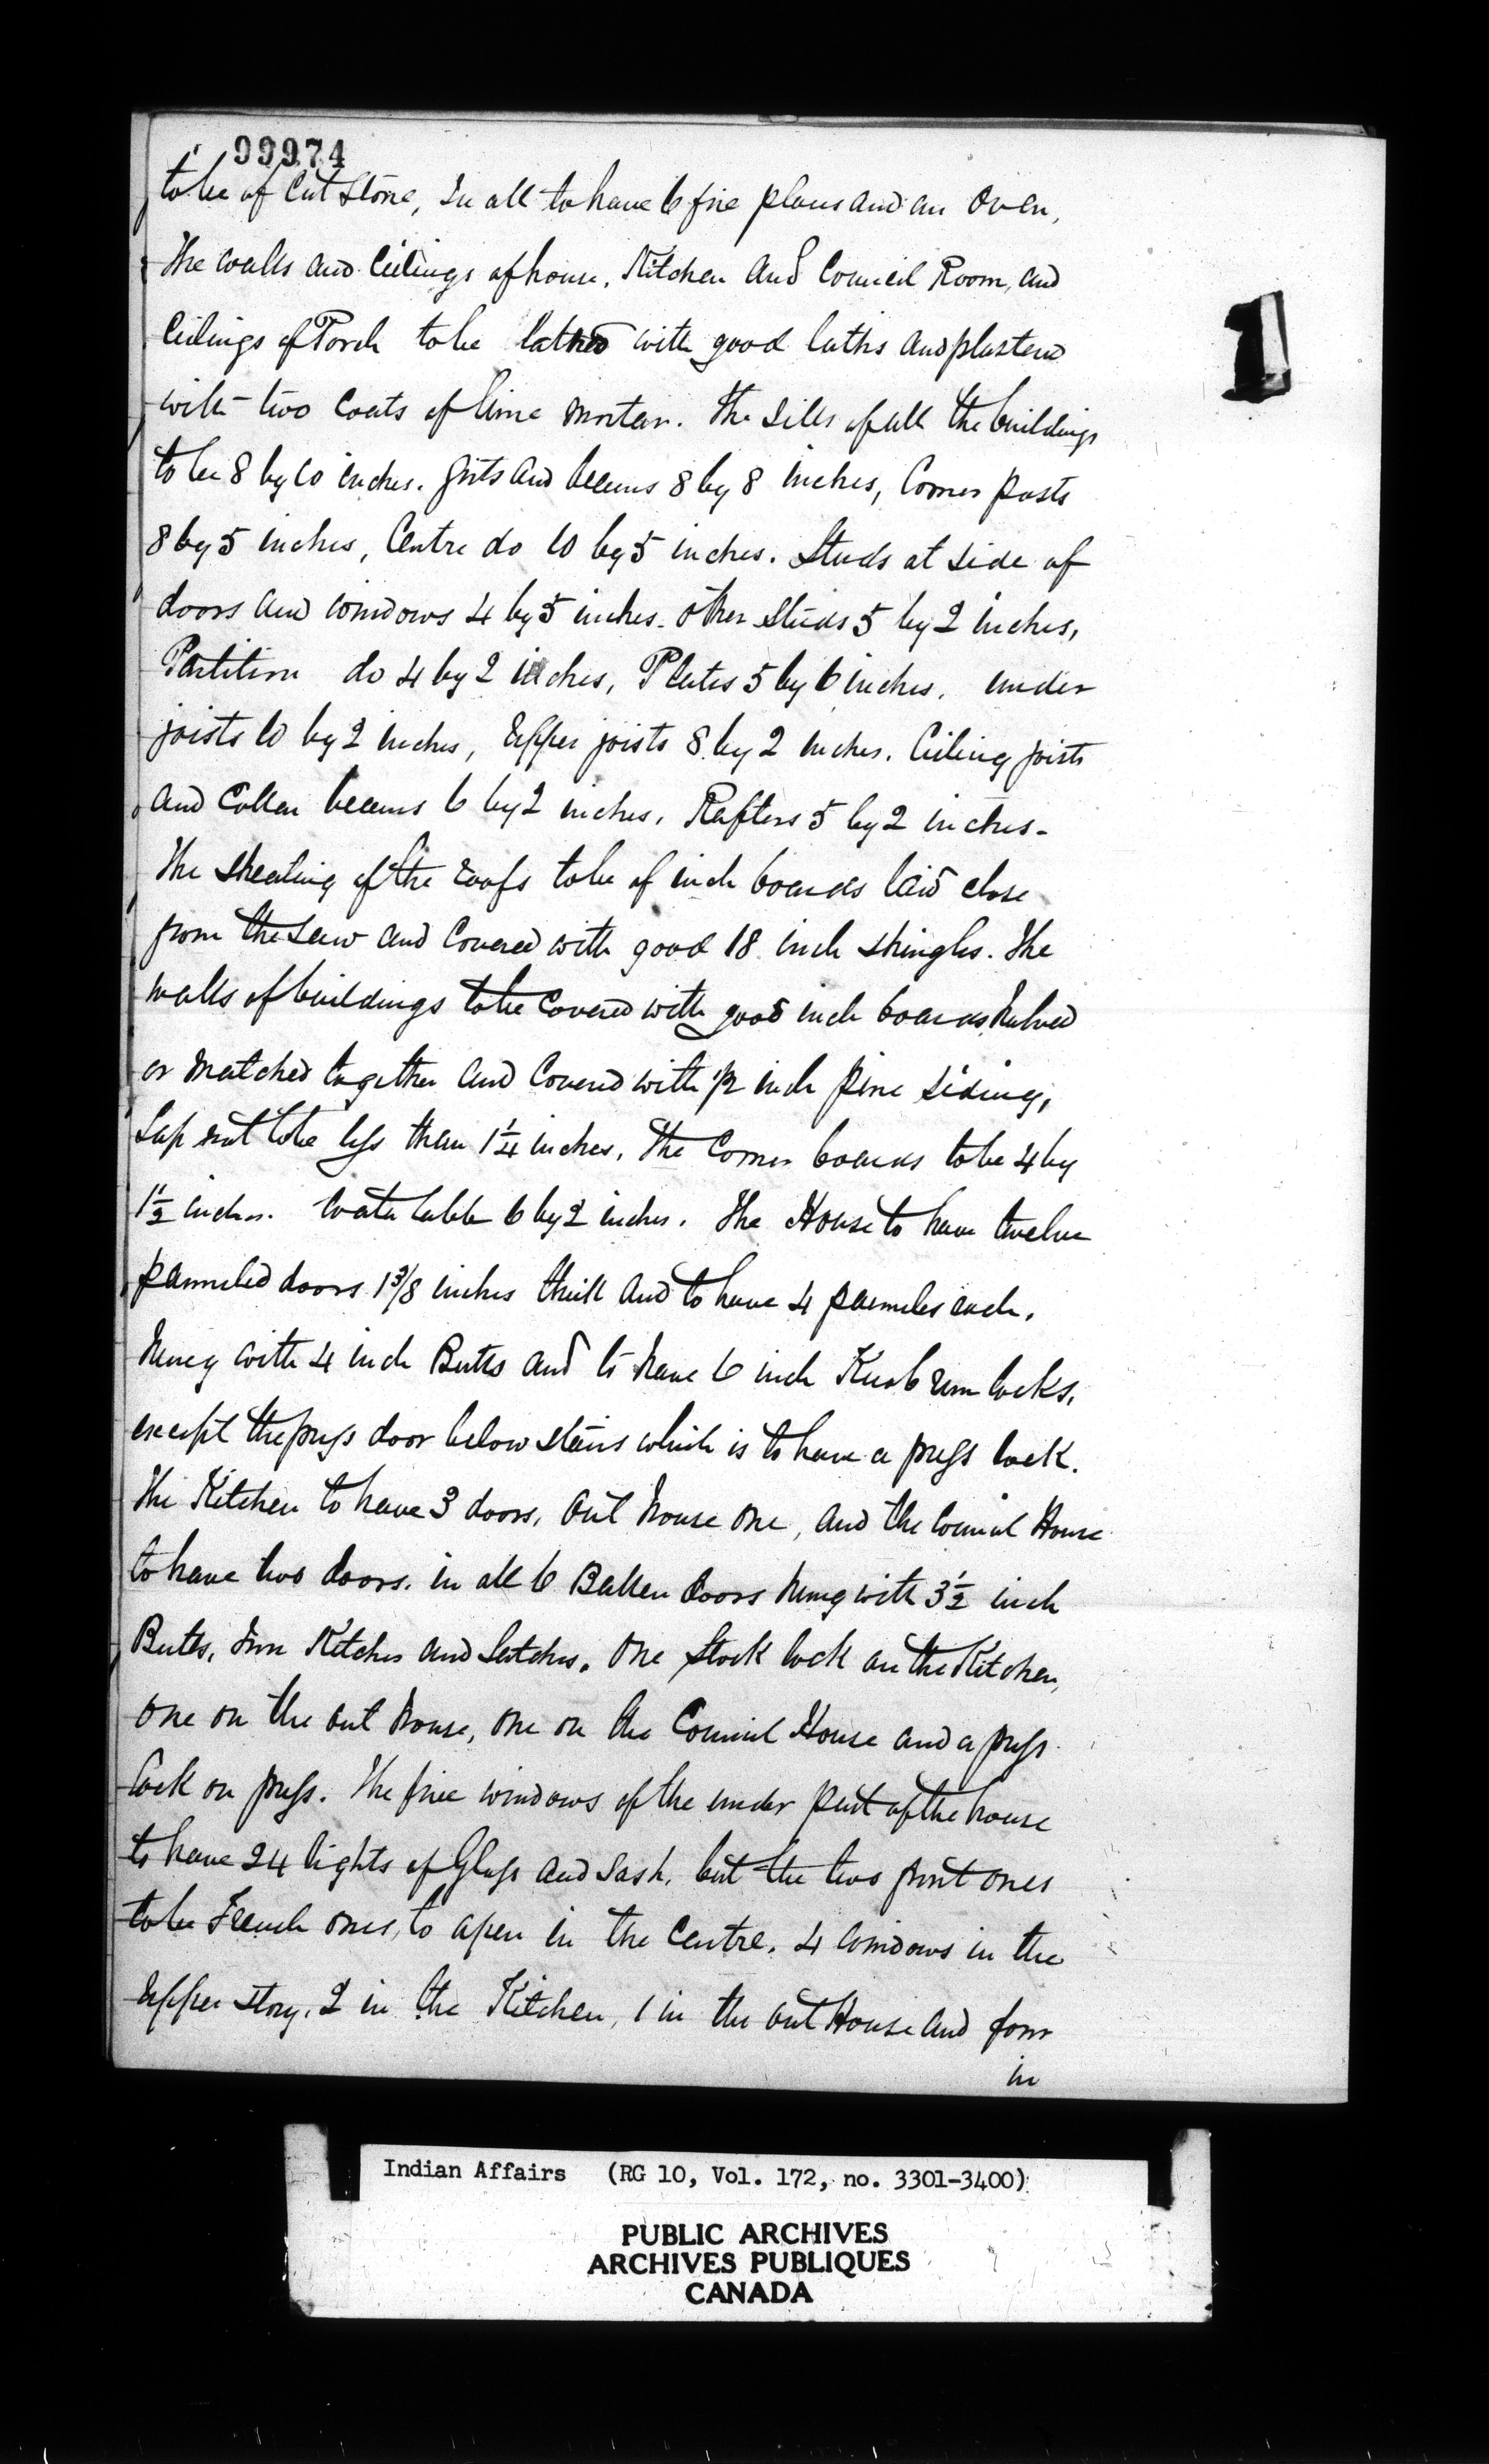 99974
to be of Cut Stone, In all to have 6 fire places and an Oven,
The walls and Ceilings of house, Kitchen and Council Room, and
Ceilings of Porch to be lathed with good laths and plastered
with two Coats of lime mortar. The Sills of all the buildings
to be 8 by 10 inches. girts and beams 8 by 8 inches, Corner posts
8 by 5 inches, Centre do 10 by 5 inches. Studs at side of
doors and windows 4 by 5 inches. other studs 5 by 2 inches,
Partition do 4 by 2 inches, Plates 5 by 6 inches, under
joists 10 by 2 inches, Upper joists 8 by 2 inches. Ceiling joists
and Collar beams 6 by 2 inches, Rafters 5 by 2 inches.
The sheating of the roofs to be of inch boards laid close
from the Saw and Covered with good 18 inch shingles. The
walls of buildings to be Covered with good inch boards halved
or matched together and Covered with 1/2 inch pine siding,
Lap not to be less than 1 1/4 inches, The Corner boards to be 4 by
1 1/2 inches. Water table 6 by 2 inches. The House to have twelve
panneled doors 1 3/8 inches thick and to have 4 pannels each,
hung with 4 inch Butts and to have 6 inch Knob rim locks,
except the press door below stairs which is to have a press lock.
The Kitchen to have 3 doors, out house one, and the Council House
to have two doors. in all 6 Batten doors hung with 3 1/2 inch
Butts, Iron Ketches and Latches. One Stock lock on the Kitchen,
one on the out house, one on the Council House and a press
lock on press. The five windows of the under part of the house
to have 24 lights of Glass and Sash, but the two front ones
to be French ones, to open in the Centre. 4 windows in the
Upper story, 2 in the Kitchen, 1 in the out House and four
in
1
Indian Affairs (RG 10, Vol. 172, no. 3301-3400)
PUBLIC ARCHIVES
ARCHIVES PUBLIQUES
CANADA